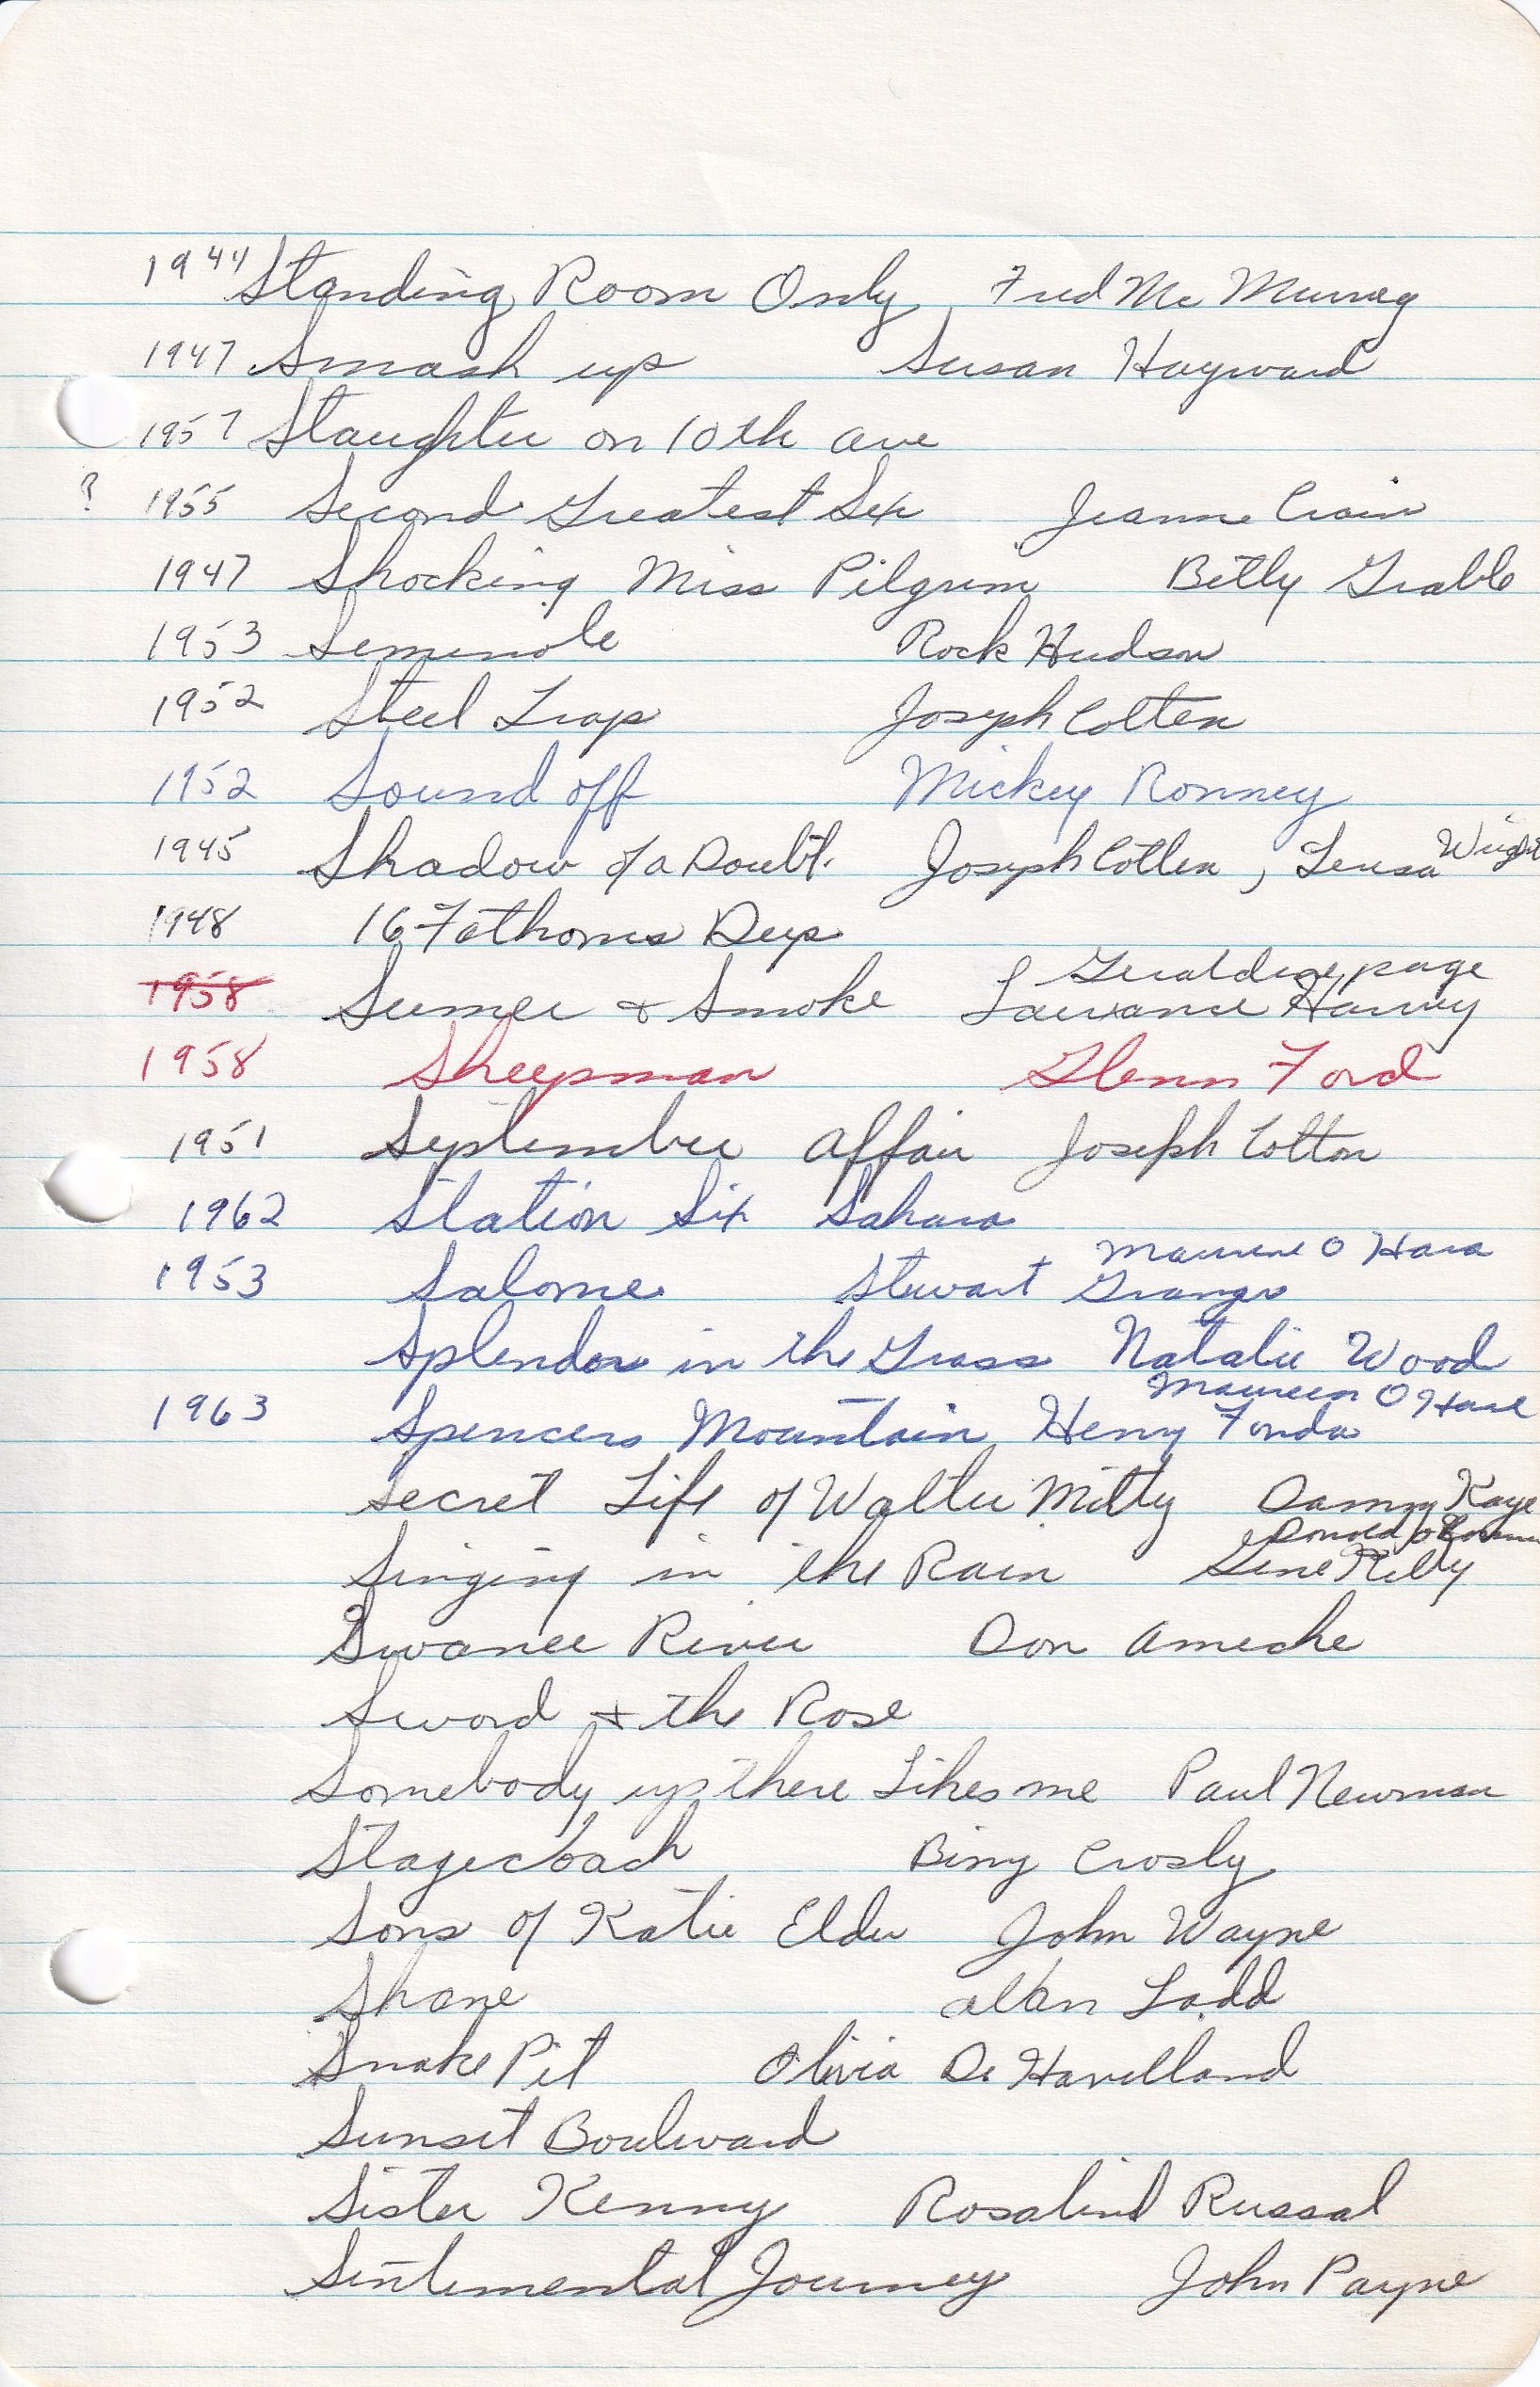 1944 Standing Room Only Fred Mc Murray
1947 Smash up Susan Hayward
1957 Slaughter on 10th ave
? 1955 Second Greatest Sex Jeanne Crain
1947 Shocking Miss Pilgrim Betty Grable
1953 Seminole Rock Hudson
1952 Steel Trap Joseph Cotten
1952 Sound off Mickey Ronney
1945 Shadow of a Doubt. Joseph Cotten, Teresa Wright
1948 16 Fathoms Deep
Geraldine page
1958 Sumer & Smoke Laurance Harvey
1958 Sheepman Glenn Ford
1951 September Affair Joseph Cotton
1962 Station Six Sahara
Maureen O Hara
1953 Salome Stewart Granger
Splendor in the Grass Natalie Wood
Maureen O Hara
1963 Spencers Mountain Henry Fonda
Secret Life of Walter Mitty Danny Kaye
Donald
Singing in the Rain Gene Kelly
Swanee River Don Ameche
Sword & the Rose
Somebody up there Likes me Paul Newman
Stagecoach Bing Crosby
Sons of Katie Elder John Wayne
Shane Alan Ladd
Snake Pit Olivia De Havilland
Sunset Boulevard
Sister Kenny Rosalind Russal
Sentimental Journey John Payne